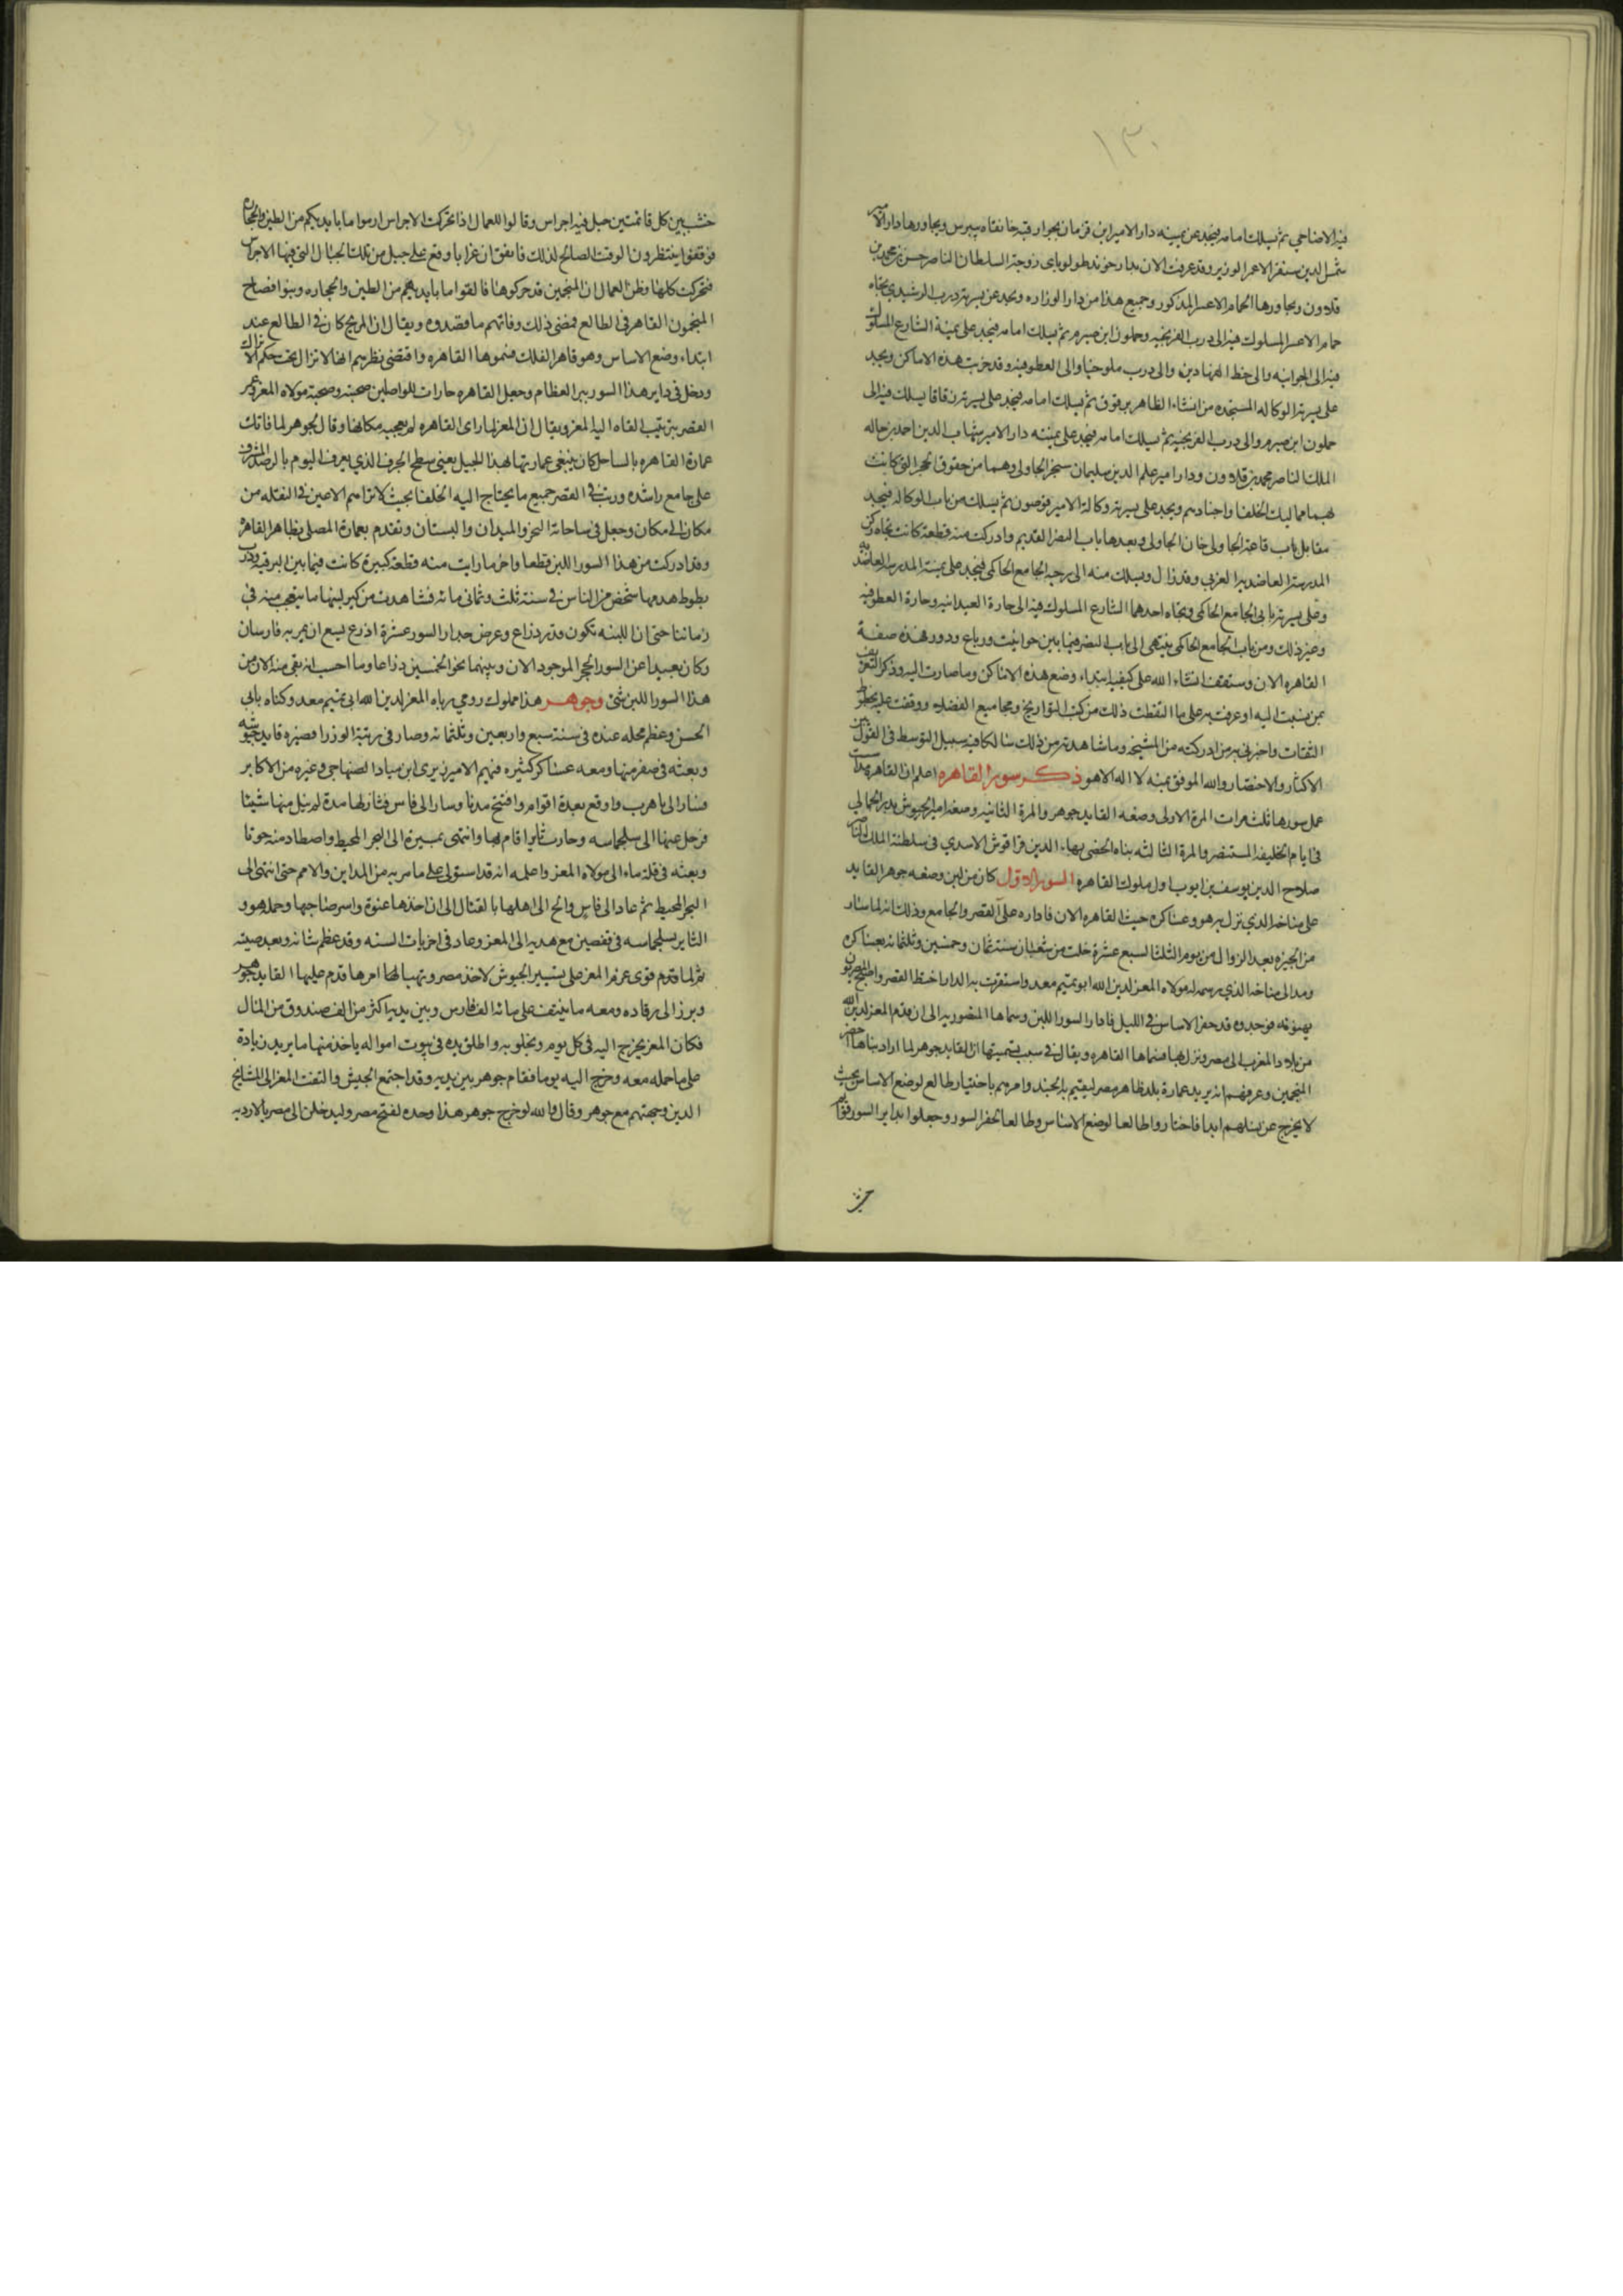 ١٣٠
فيه الاضاحي ثم يسلك امامه فيجد عن يمينه دار الامير ابن قرمان بجوار قبه خانقاه بيبرس ويجاورها دار الامير
شمس الدين سنقر الاعسر الوزير وقد عرفت الان بدار خوند طولوباى زوجة السلطان الناصر حسن بن محمد بن
قلاون ويجاورها الحمام الاعسر المذكور وجميع هذا من دار الوزاره ويجد عن يسرته درب الرشيدي تجاه
حمام الاعسر المسلوك فيه الى درب الفرنجيه وحملون ابن صيرم ثم يسلك امامه فيجد على يمينة الشارع المسلوك
فيه الى الجوانيه والى خط الفهادين والى درب ملوخيا والى العطوفيه وقد خربت هذه الاماكن ويجد
على يسرته الوكاله المستجده من انشاء الظاهر برقوق ثم يسلك امامه فيجد على يسرته زقاقا يسلك فيه الى
حملون ابن صيرم والى درب الفرنجيه ثم يسلك امامه فيجد على يمنته دار الامير شهاب الدين احمد بن خاله
الملك الناصر محمد بن قلاوون ودار امير علم الدين سليمان سنجر الجاولى وهما من حقوق الحجر التى كانت
بهما مماليك الخلفا واجنادهم ويجد على يسرته وكالة الامير قوصون ثم يسلك من باب الوكاله فيجد
مقابل باب قاعة الجاولى خان الجاولى وبعدها باب النصر القديم وادركت منه قطعة كانت تجاه ركن
المدرسة العاضديه الغربي وقد زال ويسلك منه الى رحبه الجامع الحاكمى فيجد على يمنته المدرسه العاضديه
وعلى يسرته بابى الجامع الحاكمى وتجاه احدهما الشارع المسلوك فيه الى حارة العيدانيه وحارة العطوفيه
وغير ذلك ومن باب الجامع الحاكمى ينتهى الى باب النصر فيما بين حوانيت ورباع ودور هذه صفة
القاهره الان وستقف انشاء الله على كيفيه ابتداء وضع هذه الاماكن وما صارت اليه وذكر التعريف
بمن نسبت اليه او عرفت به على ما التقطت ذلك من كتب التواريخ ومجاميع الفضلاء ووقفت عليه بخطوط
الثقات واخبرنى به من ادركته من المشيخه وما شاهدته من ذلك سالكا فيه سبيل التوسط فى القول بين
الاكثار والاختصار والله الموفق بمنه لا اله الا هو ذكر سور القاهره اعلم ان القاهره مذ اسست
عمل سورها ثلث مرات المرة الاولى وضعه القايد جوهر والمرة الثانيه وضعه امير الجيوش بدر الجمالى
فى ايام الخليفه المستنصر والمرة الثالثه بناه الخصى بهاء الدين قراقوش الاسدي فى سلطنة الملك الناصر
صلاح الدين يوسف بن ايوب اول ملوك القاهره السور الاول كان من لبن وضعه جوهر القايد
على مناخه الذي نزل به هو وعساكره حيث القاهره الان فاداره على القصر والجامع وذلك انه لما سار
من الجيزه بعد الزوال من يوم الثلثا لسبع عشرة خلت من شعبان سنة ثمان وخمسين وثلثمائه بعساكره
ومد الى مناخه الذي رسمه له مولاه المعز لدين الله ابو تميم معد واستقرت به الدار اختط القصر واصبح المصريون
يهنونه فوجدوه قد حفر الاساس فى الليل فادار السور اللبن وسماها المنصوريه الى ان قدم المعز لدين الله
من بلاد المغرب الى مصر ونزل بها فسماها القاهره ويقال فى سبب تسميتها ان القايد جوهر لما اراد بناها احضر
المنجمين وعرفهم انه يريد عمارة بلد ظاهر مصر ليقيم بها الجند وامرهم باختيار طالع لوضع الاساس بحيث
لا يخرج عن نسلهم ابدا فاختاروا طالعا لوضع الاساس وطالعا لحفر السور وجعلوا بداير السور قوائم
خشب
خشب بين كل قائمتين حبل فيه اجراس وقالوا للعمال اذا تحركت الاجراس ارموا ما بايديكم من الطين والحجاره
فوقفوا ينتظرون الوقت الصالح لذلك فاتفق ان غرابا وقع على حبل من تلك الحبال التى فيها الاجراس
فتحركت كلها وظن العمال ان المنجمين قد حركوها فالقوا ما بايديهم من الطين والحجاره وبنوا فصاح
المنجمون القاهر فى الطالع فمضى ذلك وفاتهم ما قصدوه ويقال ان المريخ كان فى الطالع عند
ابتداء وضع الاساس وهو قاهر الفلك فسموها القاهره واقتضى نظرهم انها لا تزال تحت حكم الاتراك
ودخل فى داير هذا السور بير العظام وجعل القاهره حارات للواصلين صحبته وصحبة مولاه المعز وعمر
القصر بترتيب القاه اليه المعز ويقال ان المعز لما راى القاهره لم يعجبه مكانها وقال لجوهر لما فاتك
عمارة القاهره بالساحل كان ينبغى عمارتها بهذا الجبل يعنى سطح الجرف الذي يعرف اليوم بالرصد المشرف
على جامع راشده ورتب فى القصر جميع ما يحتاج اليه الخلفا بحيث لا تراهم الاعين فى النقله من
مكان الى مكان وجعل فى ساحاته البحر والميدان والبستان وتقدم بعمارة المصلى بظاهر القاهره
وقد ادركت من هذا السور اللبن قطعا واخر ما رايت منه قطعة كبيرة كانت فيما بين البرقيه ودرب
بطوط هدمها شخص من الناس فى سنة ثلث وثمانى مائه فشاهدت من كبر لبنها ما يتعجب منه فى
زماننا حتى ان اللبنه تكون قدر ذراع وعرض جدار السور عشرة اذرع يسع ان يمر به فارسان
وكان بعيدا عن السور الحجر الموجود الان وبينهما نحو الخمسين ذراعا وما احسب انه بقى منه الان من
هذا السور اللبن شئ وجوهر هذا مملوك رومي رباه المعز لدين الله ابى تميم معد وكناه بابى
الحسن وعظم محله عنده فى سنة سبع واربعين وثلثمائه وصار فى رتبة الوزرا فصيره قايد جيوشه
وبعثه فى صفر منها ومعه عساكر كثيره فيهم الامير زيرى ابن مياد الصنهاجى وغيره من الاكابر
فسار الى تاهرت واوقع بعدة اقوام وافتتح مدنا وسار الى فاس فنازلها مدة لم ينل منها شيئا
فرحل عنها الى سجلماسه وحارب ثايرا قام بها وانتهى بمسيره الى البحر المحيط واصطاد منه حوتا
وبعثه فى قلة ماء الى مولاه المعز واعلمه انه قد استولى على ما مر به من المداين والامم حتى انتهى الى
البحر المحيط ثم عاد الى فاس والح الى اهلها بالقتال الى ان اخذها عنوة واسر صاحبها وحمله هو و
الثاير بسجلماسه فى قفصين مع هديه الى المعز وعاد فى اخريات السنه وقد عظم شانه وبعد صيته
ثم لما قدم قوى عزم المعز على تسيير الجيوش لاخذ مصر وتهيا لها امرها قدم عليها القايد جوهر
وبرز الى رقاده ومعه ما ينيف على مائة الف فارس وبين يديه اكثر من الف صندوق من المال
فكان المعز يخرج اليه فى كل يوم ويخلو به واطلق يده فى بيوت امواله ياخذ منها ما يريد زيادة
على ما حمله معه وخرج اليه يوما فقام جوهر بين يديه وقد اجتمع الجيش والتفت المعز الى المشايخ
الذين وجهتهم مع جوهر وقال والله لو خرج جوهر هذا وحده لفتح مصر وليدخلن الى مصر بالارديه